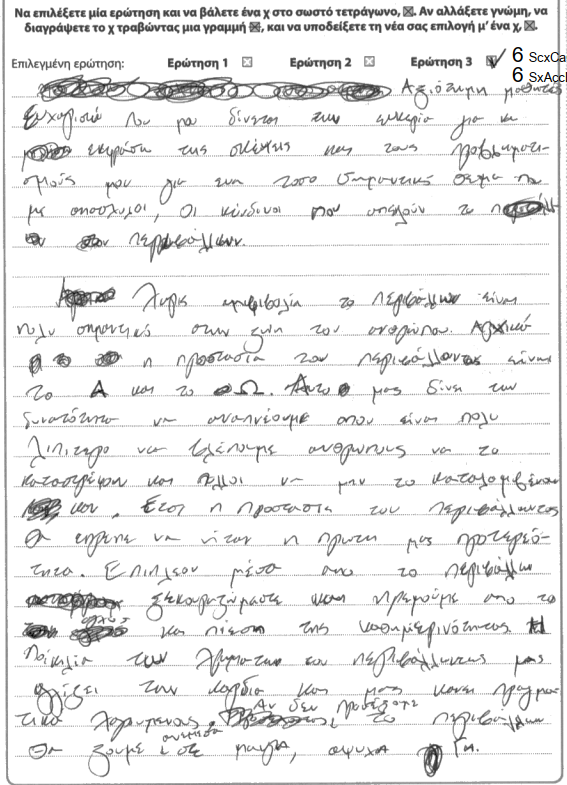 Να επιλέξετε μία ερώτηση και να βάλετε ένα χ στο σωστό τετράγωνο, ☒. Αν αλλάξετε γνώμη, να
διαγράψετε το χ τραβώντας μια γραμμή ☒, και να υποδείξετε τη νέα σας επιλογή μ' ένα χ, ☒.
Επιλεγμένη ερώτηση: Ερώτηση 1 ☒ Ερώτηση 2 ☒ Ερώτηση 3 ✓ 6 ScxCa
6 SxAccl
Αξιότιμη
Ευχαριστώ που μου δίνεται την ευκερία για να
εκφράσω της σκέψεις και τους προβληματι-
σμούς μου για ένα τόσο σημαντικό θέμα που
με απασχολεί, Οι κίνδυνοι που απειλούν το
περιβάλλων
Χωρίς αμφιβολία το περιβάλλων είναι
πολυ σημαντικό στην ζωή του ανθρώπου. Αρχικά
η προστασία του περιβάλλοντος είναι
το Α και το Ω. Αυτο μας δίνει την
δυνατότητα να αναπνέουμε οπου είναι πολυ
λιπιτερο να βλέπουμε ανθρωπους να το
καταστρέφουν και άλλοι να μην το καταλαμβένουν
καν. Ετσι η προστασία του περιβάλλοντος
θα επρεπε να ήταν η πρωτη μας προτερεό-
τητα. Επιπλεον μέσα απο το περιβάλλων
ξεκουραζόμαστε και ηρεμούμε απο το
άγχος και πίεση της καθημερινότητας. Η
Ποικιλία των χρωματων του περιβάλλοντος μας
αγγίζει την καρδια και μας κανει πραγμα-
τικα χαρυμενους. Αν δεν προσέξουμε το περιβάλλων
θα ζουμε ανεμεσα σε μαυρη, αψυχα Γη.